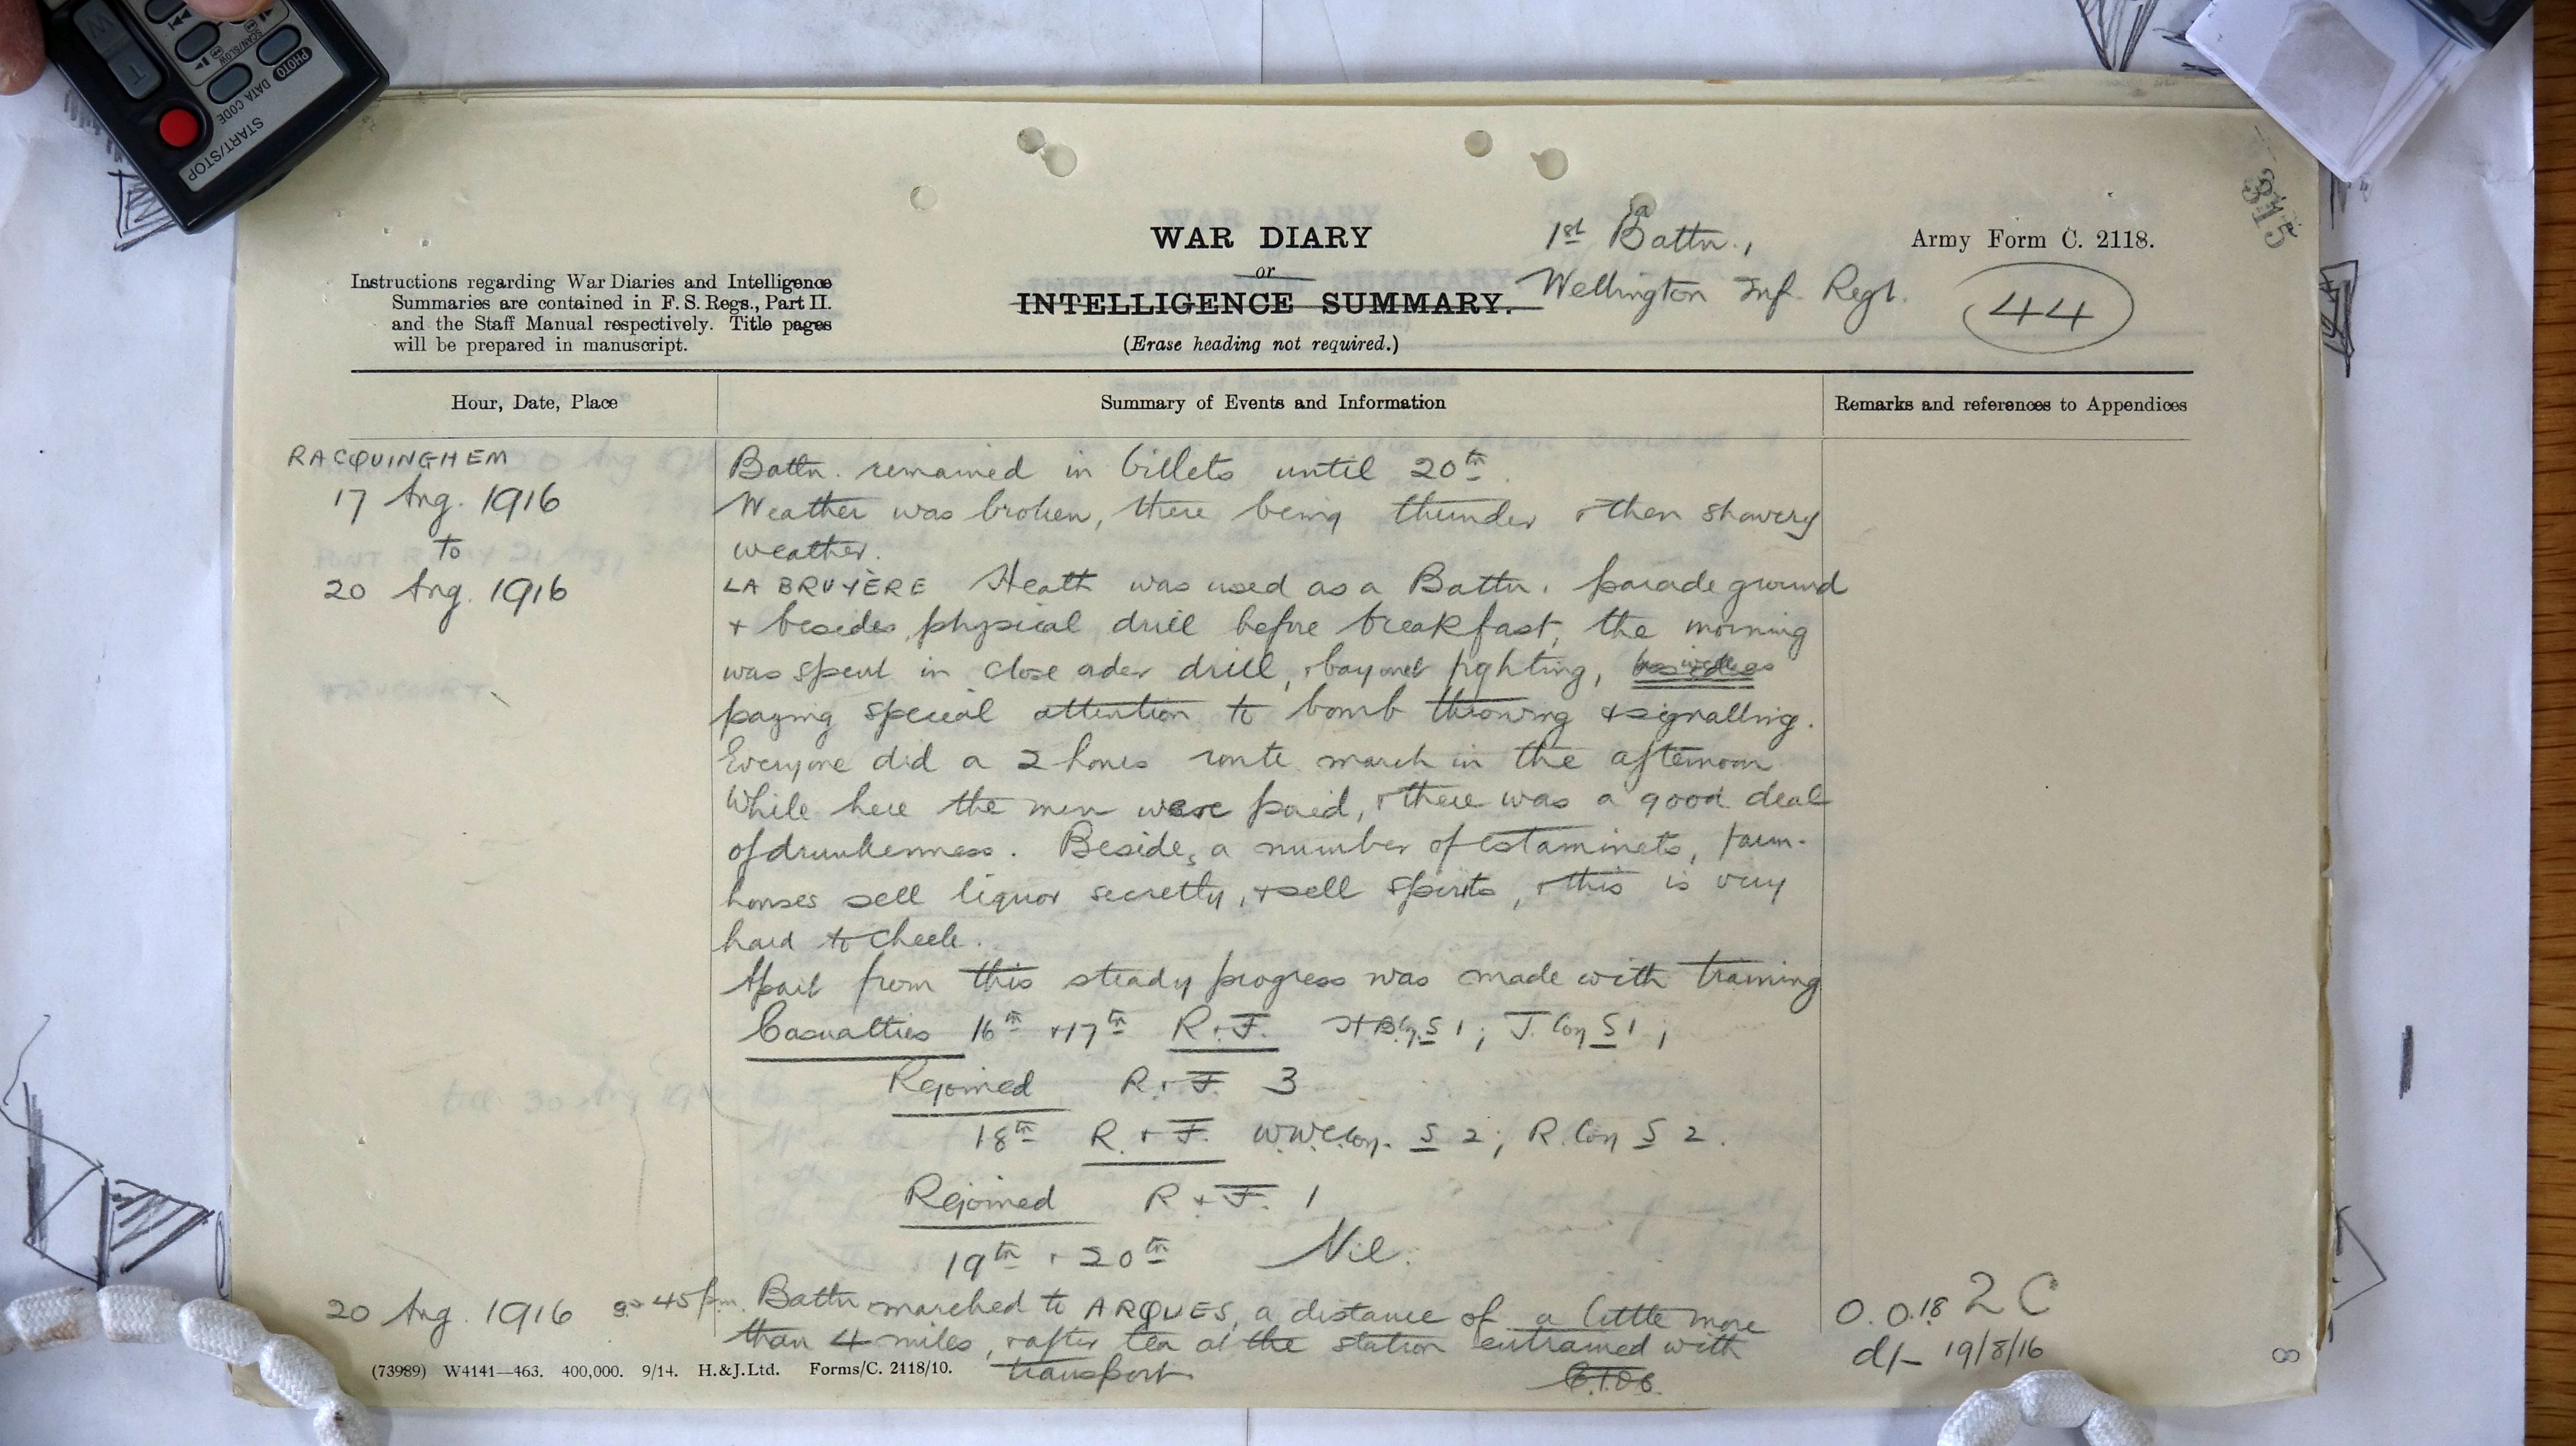 PHOTO
SCAN/SLOW
DATA CODE
START/STOP
315
WAR DIARY
or
INTELLIGENCE SUMMARY.
(Erase heading not required.)
1st Battn.,
Wellington Inf. Regt.
Army Form C. 2118.
44
Instructions regarding War Diaries and Intelligence
Summaries are contained in F. S. Regs., Part II.
and the Staff Manual respectively. Title pages
will be prepared in manuscript.
Hour, Date, Place
Summary of Events and Information
Remarks and references to Appendices
RACQUINGHEM
17 Aug. 1916
to
20 Aug. 1916
Battn. remained in billets until 20th.
Weather was broken, there being thunder & then showery
weather.
LA BRUYÈRE Heath was used as a Battn. parade ground
+ besides physical drill before breakfast, the morning
was spent in close order drill, & bayonet fighting,
paying special attention to bomb throwing & signalling.
Everyone did a 2 hours route march in the afternoon
While here the men were paid, & there was a good deal
of drunkenness. Besides a number of estaminets, farm-
houses sell liquor secretly, & sell spirits, & this is very
hard to check.
Apart from this steady progress was made with training
Casualties 16th & 17th R & F. S 1; T. Coy S 1;
Rejoined R. & F 3
18th R & F. W.W.C. Coy. S 2; R. Coy S 2.
Rejoined R & F. 1
19th & 20th Nil.
20 Aug. 1916 45 p.m. Battn marched to ARQUES, a distance of a little more
than 4 miles, & after tea at the station entrained with
transport
O. O. 18 2 C
d/- 19/8/16
8
(73989) W4141—463. 400,000. 9/14. H.&J.Ltd. Forms/C. 2118/10.